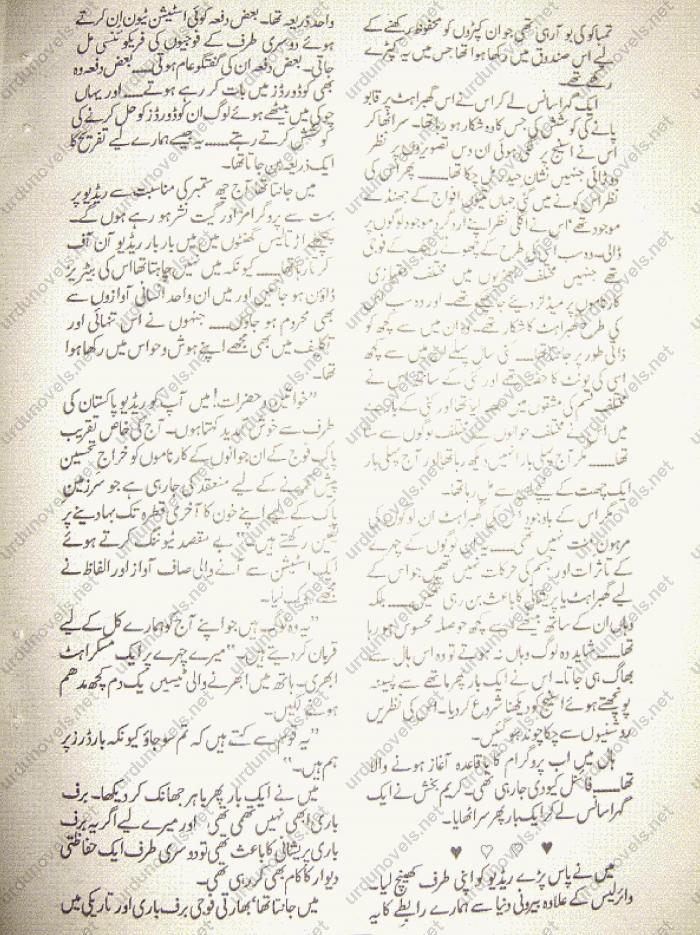 تمباکو کی بو آ رہی تھی جو ان کپڑوں کو محفوظ رکھنے کے
لیے اس صندوق میں رکھا ہوا تھا جس میں یہ کپڑے
رکھے تھے۔
ایک گہرا سانس لے کر اس نے اس گھبراہٹ پر قابو
پانے کی کوشش کی جس کا وہ شکار ہو رہا تھا۔ سر اٹھا کر
اس نے اسٹیج پر لگی ہوئی ان دس تصویروں پر نظر
دوڑائی جنہیں نشان حیدر مل چکا تھا۔۔۔۔ پھر اس کی
نظر اس کونے میں گئی جہاں تینوں افواج کے جھنڈے
موجود تھے اس نے اگلی نظر اپنے ارد گرد موجود لوگوں پر
ڈالی۔ وہ سب اسی کی طرح کے چھوٹے رینک کے فوجی
تھے جنہیں مختلف جھڑپوں میں مختلف
کارناموں پر میڈلز دیے تھے۔ اور وہ سب اس
کی طرح گھبراہٹ کا شکار تھے۔ وہ ان میں سے کچھ کو
ذاتی طور پر جانتا تھا۔۔۔۔ کئی سال پہلے ان میں سے کچھ
اسی کی یونٹ کا حصہ تھے اور کئی کے ساتھ اس نے
مختلف قسم کی مشقوں میں حصہ لیا تھا اور کئی کے بارے
میں اس نے مختلف حوالوں سے مختلف لوگوں سے سنا
تھا۔۔۔۔ مگر آج پہلی بار انہیں دیکھ رہا تھا اور آج پہلی بار
ایک چھت کے نیچے ان سے مل رہا تھا۔
مگر اس کے باوجود اس کی گھبراہٹ ان لوگوں کی
مرہون منت نہیں تھی۔۔۔۔ یہ ان لوگوں کے چہرے
کے تاثرات اور جسم کی حرکات نہیں تھیں جو اس کے
لیے گھبراہٹ یا پریشانی کا باعث بن رہی تھیں۔۔۔۔ بلکہ
وہاں ان کے ساتھ بیٹھے اسے کچھ حوصلہ محسوس ہو رہا
تھا۔۔۔۔ شاید وہ لوگ وہاں نہ ہوتے تو وہ اس ہال سے
بھاگ ہی جاتا۔ اس نے ایک بار پھر ماتھے سے پسینہ
پونچھتے ہوئے اسٹیج کو دیکھنا شروع کر دیا۔ اس کی نظریں
روشنیوں سے چکا چوند ہو گئیں۔
ہال میں اب پروگرام کا باقاعدہ آغاز ہونے والا
تھا۔۔۔۔ فائنل کیو دی جا رہی تھی۔ کریم بخش نے ایک
گہرا سانس لے کر ایک بار پھر سر اٹھایا۔
♥ ♡ ♡ ♥
میں نے پاس پڑے ریڈیو کو اپنی طرف کھینچ لیا۔
وائرلیس کے علاوہ بیرونی دنیا سے ہمارے رابطے کا یہ
واحد ذریعہ تھا۔ بعض دفعہ کوئی اسٹیشن ٹیون ان کرتے
ہوئے دوسری طرف کے فوجیوں کی فریکوئنسی مل
جاتی۔ بعض دفعہ ان کی گفتگو عام ہوتی۔۔۔۔ بعض دفعہ وہ
بھی کوڈ ورڈز میں بات کر رہے ہوتے۔۔۔۔ اور یہاں
چوکی میں بیٹھے ہوئے لوگ ان کوڈ ورڈز کو حل کرنے کی
کوشش کرتے رہتے۔۔۔۔ یہ جیسے ہمارے لیے تفریح کا
ایک ذریعہ بن جاتا تھا۔
میں جانتا تھا آج چھ ستمبر کی مناسبت سے ریڈیو پر
بہت سے پروگرامز اور گیت نشر ہو رہے ہوں گے۔
پچھلے اڑتالیس گھنٹوں میں میں بار بار ریڈیو آن آف
کر رہا تھا۔۔۔۔ کیونکہ میں نہیں چاہتا تھا اس کی بیٹریز
ڈاؤن ہو جائیں اور میں ان واحد انسانی آوازوں سے
بھی محروم ہو جاؤں۔۔۔۔ جنہوں نے اس تنہائی اور
تکلیف میں بھی مجھے اپنے ہوش و حواس میں رکھا ہوا
تھا۔
"خواتین و حضرات! میں آپ کو ریڈیو پاکستان کی
طرف سے خوش آمدید کہتا ہوں۔ آج کی خاص تقریب
پاک فوج کے ان جوانوں کے کارناموں کو خراج تحسین
پیش کرنے کے لیے منعقد کی جا رہی ہے جو سرزمین
پاک کے لیے اپنے خون کا آخری قطرہ تک بہا دینے پر
یقین رکھتے ہیں۔" بے مقصد ٹیوننگ کرتے ہوئے
ایک اسٹیشن سے آنے والی صاف آواز اور الفاظ نے
مجھے روک لیا۔
"یہ وہ لوگ ہیں جو اپنے آج کو ہمارے کل کے لیے
قربان کر دیتے ہیں۔" میرے چہرے پر ایک مسکراہٹ
ابھری۔ ہاتھ میں ابھرنے والی ٹیسیں یک دم کچھ مدھم
ہونے لگیں۔
"یہ قوم سے کہتے ہیں کہ تم سو جاؤ کیونکہ بارڈرز پر
ہم ہیں۔"
میں نے ایک بار پھر باہر جھانک کر دیکھا۔ برف
باری ابھی نہیں تھمی تھی اور میرے لیے اگر یہ برف
باری پریشانی کا باعث تھی تو دوسری طرف ایک حفاظتی
دیوار کا کام بھی کر رہی تھی۔
میں جانتا تھا، بھارتی فوجی برف باری اور تاریکی میں
urdunovels.net